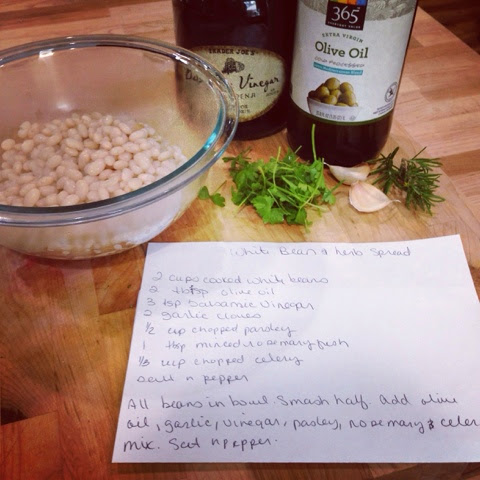 365
EVERYDAY VALUE
EXTRA VIRGIN
Olive Oil
COLD PROCESSED
TRADER JOE'S
Vinegar
White Bean & herb Spread
2 cups cooked white beans
2 tbsp olive oil
3 tsp Balsamic Vinegar
2 garlic cloves
1/2 cup chopped parsley
1 tbsp minced rosemary fresh
1/3 cup chopped celery
salt n pepper
All beans in bowl. Smash half. Add olive
oil, garlic, vinegar, parsley, rosemary & celer
mix. Salt n pepper.